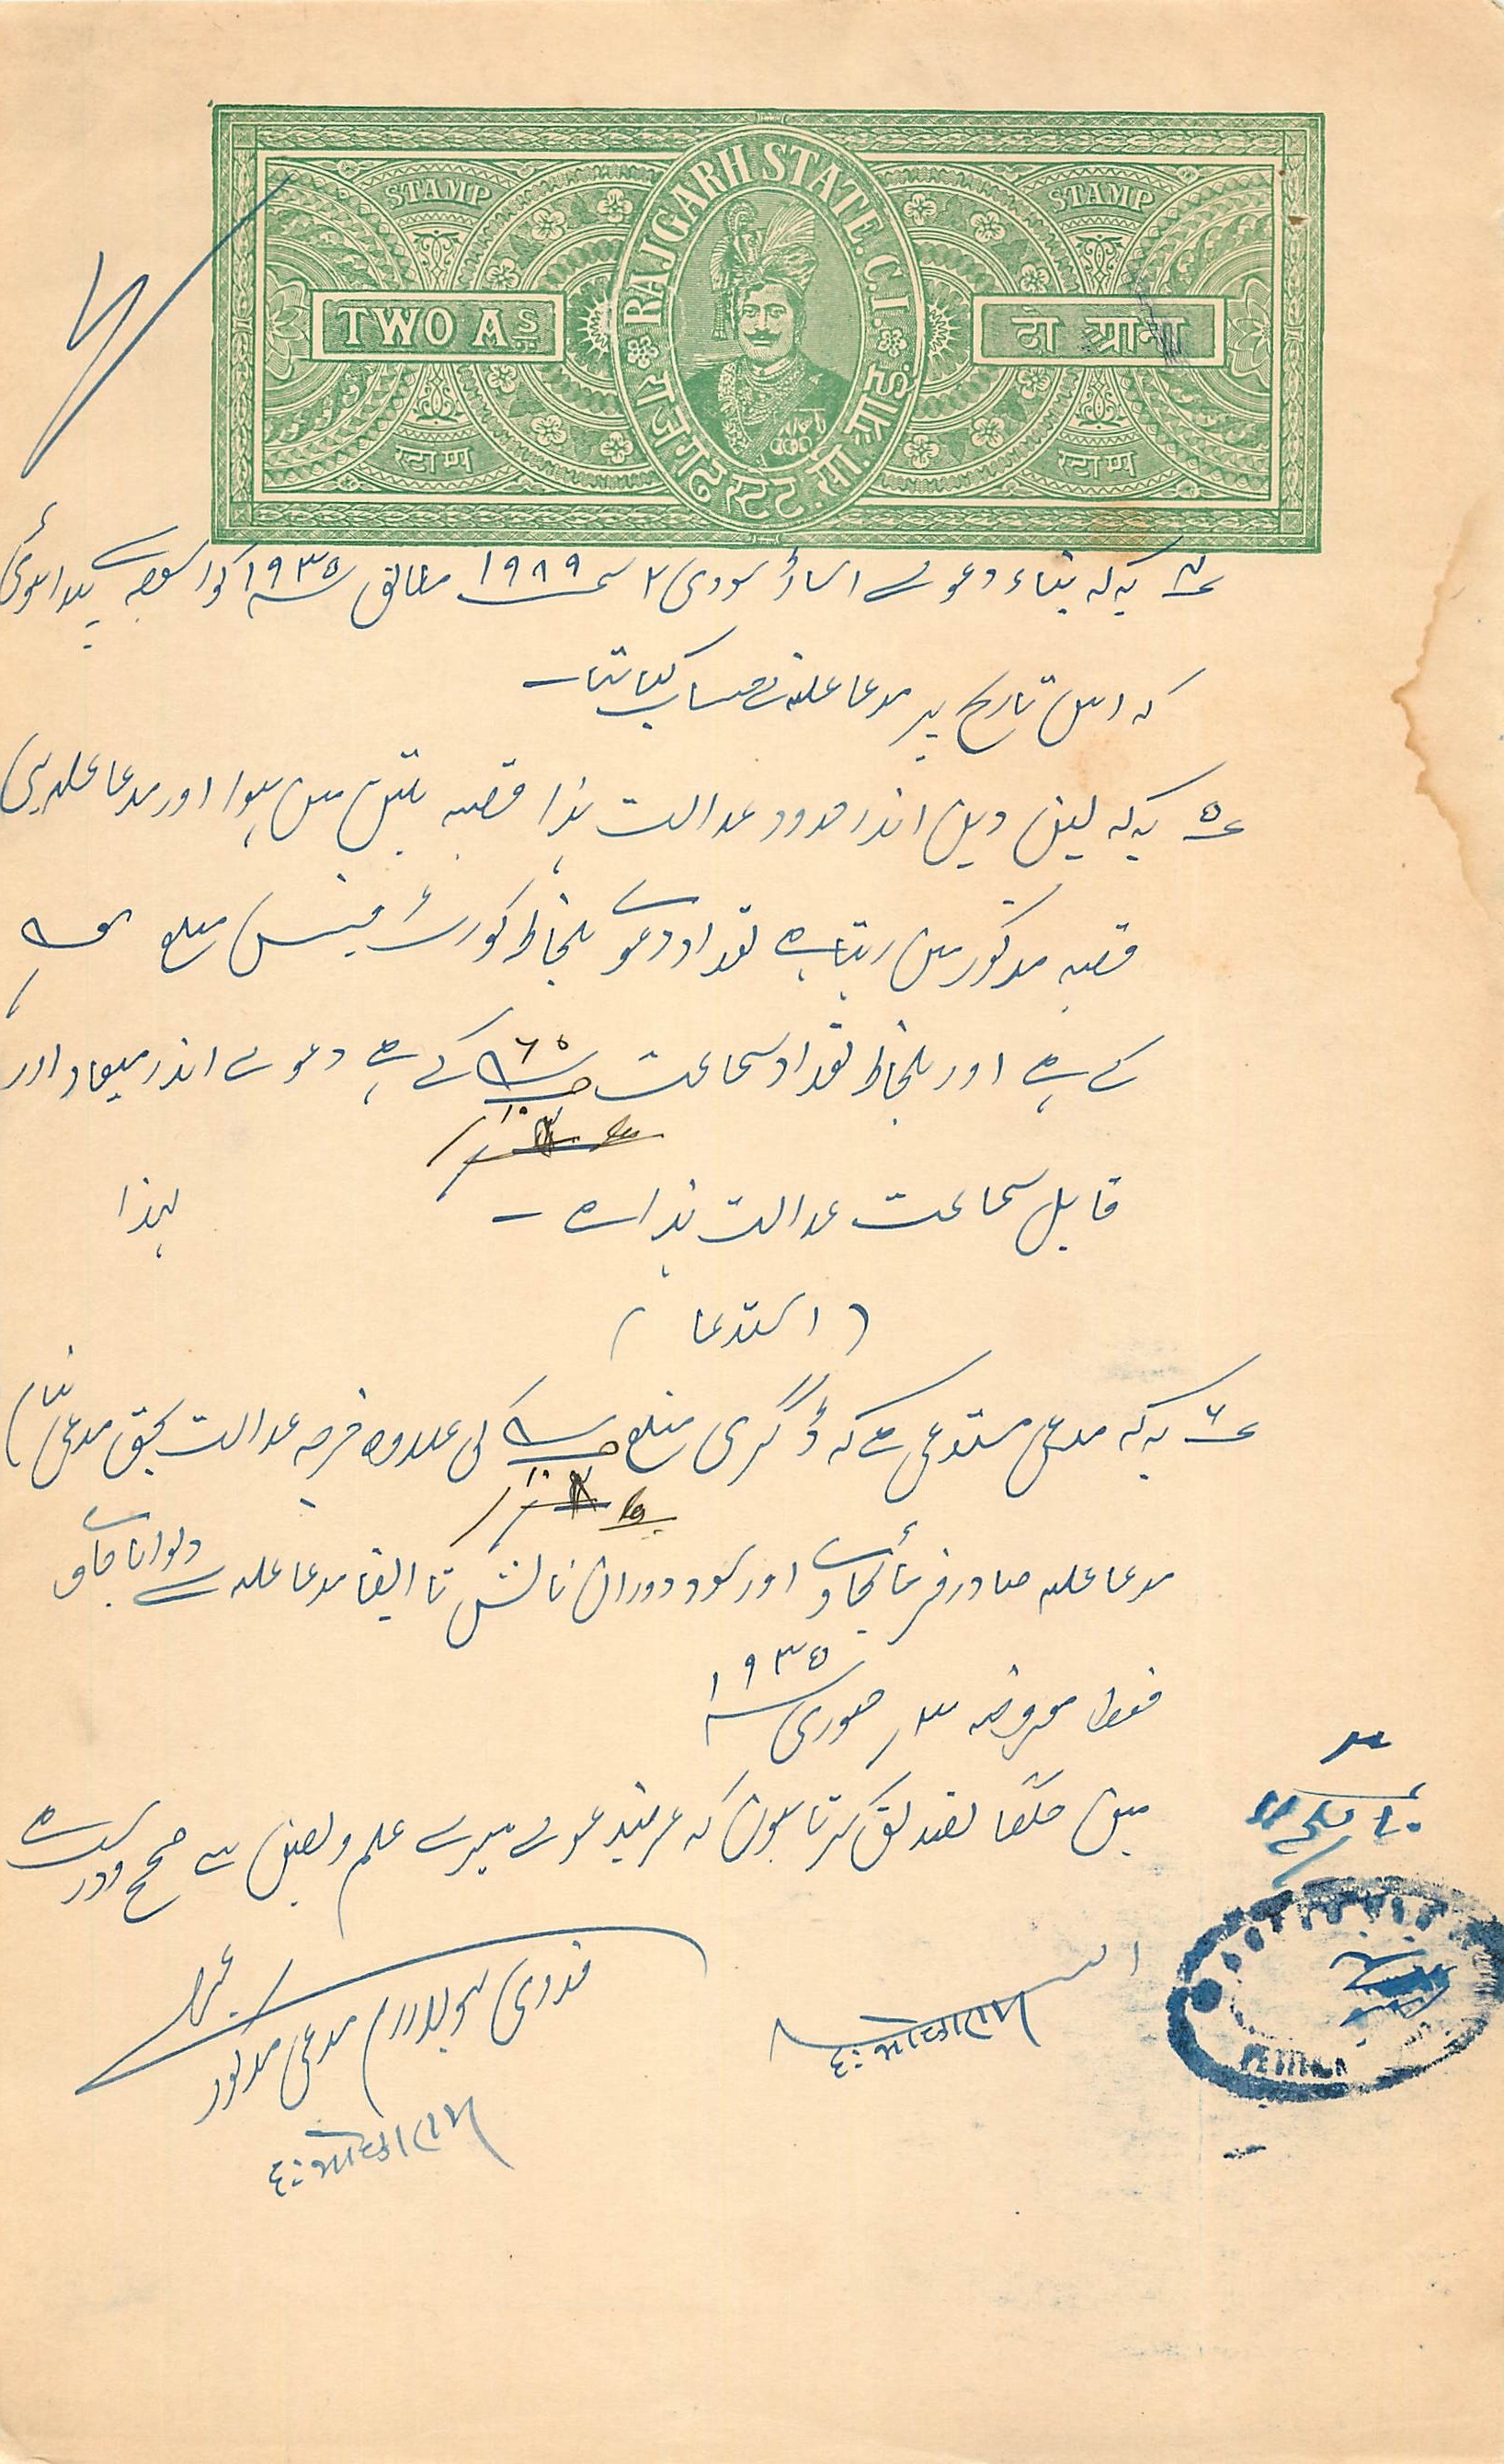 RAJGARH STATE. C. I.
STAMP STAMP
TWO As दो आना
राजगढ स्टेट. सी. आइ.
स्टाम्प स्टाम्प
یہ کہ بناء دعوے اساڑ سودی ۲ سمت ۱۹۸۹ مطابق ۱۹۳۵ کو پیدا ہوئی
کہ اس تاریخ پر مدعا علیہ نے حساب کیا تھا۔
۵ یہ کہ لین دین اندر حدود عدالت ہذا قصبہ میں ہوا اور مدعا علیہ بھی
قصبہ مذکور میں رہتا ہے تعداد دعوے بلحاظ کورٹ فیس مبلغ
کے ہے اور بلحاظ تعداد سماعت کے ہے دعوے اندر میعاد اور
قابل سماعت عدالت ہذا ہے۔ لہذا
(استدعا)
۶ یہ کہ مدعی مستدعی ہے کہ ڈگری مبلغ کی علاوہ خرچہ عدالت بحق مدعی بنام
مدعا علیہ صادر فرمائی جاوے اور سود دوران نالش تا ایفا مدعا علیہ سے دلوایا جاوے
فقط معروضہ ۳ جنوری ۱۹۳۵
میں حلفاً تصدیق کرتا ہوں کہ عرضیدعوے میرے علم و یقین سے صحیح و درست ہے
العبد
فدوی مدعی مذکور